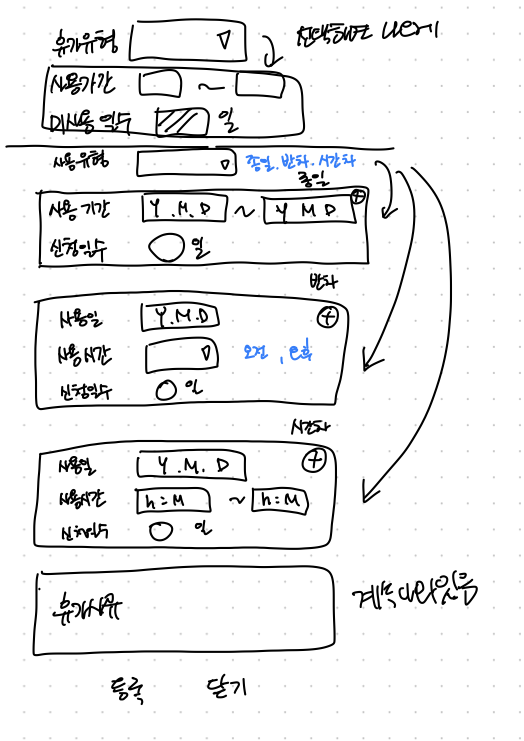 휴가유형 선택해면 나오게
사용기간 ~
미사용 일수 일
사용유형 종일. 반차. 시간차
종일
사용 기간 Y.M.D ~ Y M D
신청일수 일
반차
사용일 Y.M.D
사용시간 오전, 오후
신청일수 일
시간차
사용일 Y.M.D
사용시간 h:M ~ h:M
신청일수 일
휴가사유 계속 나와있음
등록 닫기